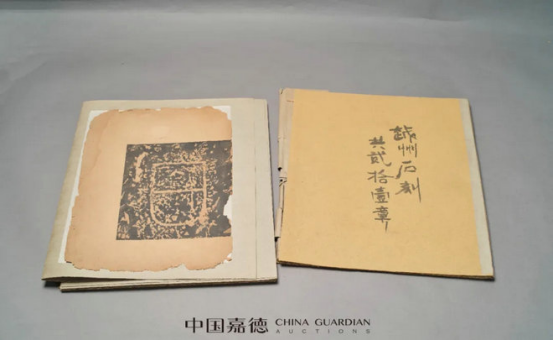 越州石刻
共貳拾壹章
中国嘉德
CHINA GUARDIAN
AUCTIONS